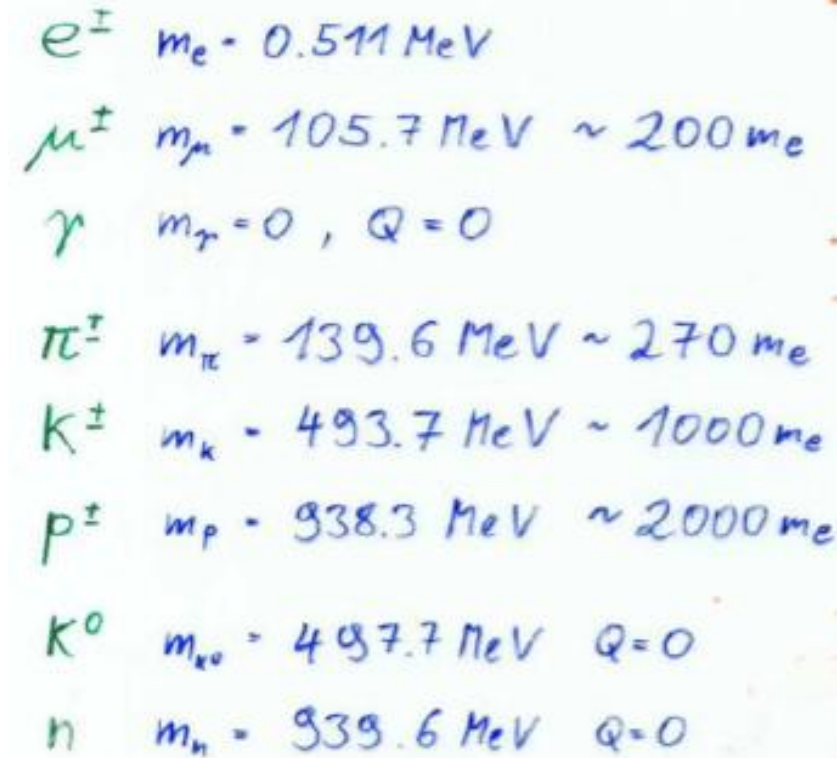 e± mₑ = 0.511 MeV
μ± m_μ = 105.7 MeV ~ 200 mₑ
γ m_γ = 0 , Q = 0
π± m_π = 139.6 MeV ~ 270 mₑ
K± m_K = 493.7 MeV ~ 1000 mₑ
p± m_p = 938.3 MeV ~ 2000 mₑ
K⁰ m_K⁰ = 497.7 MeV Q = 0
n m_n = 939.6 MeV Q = 0